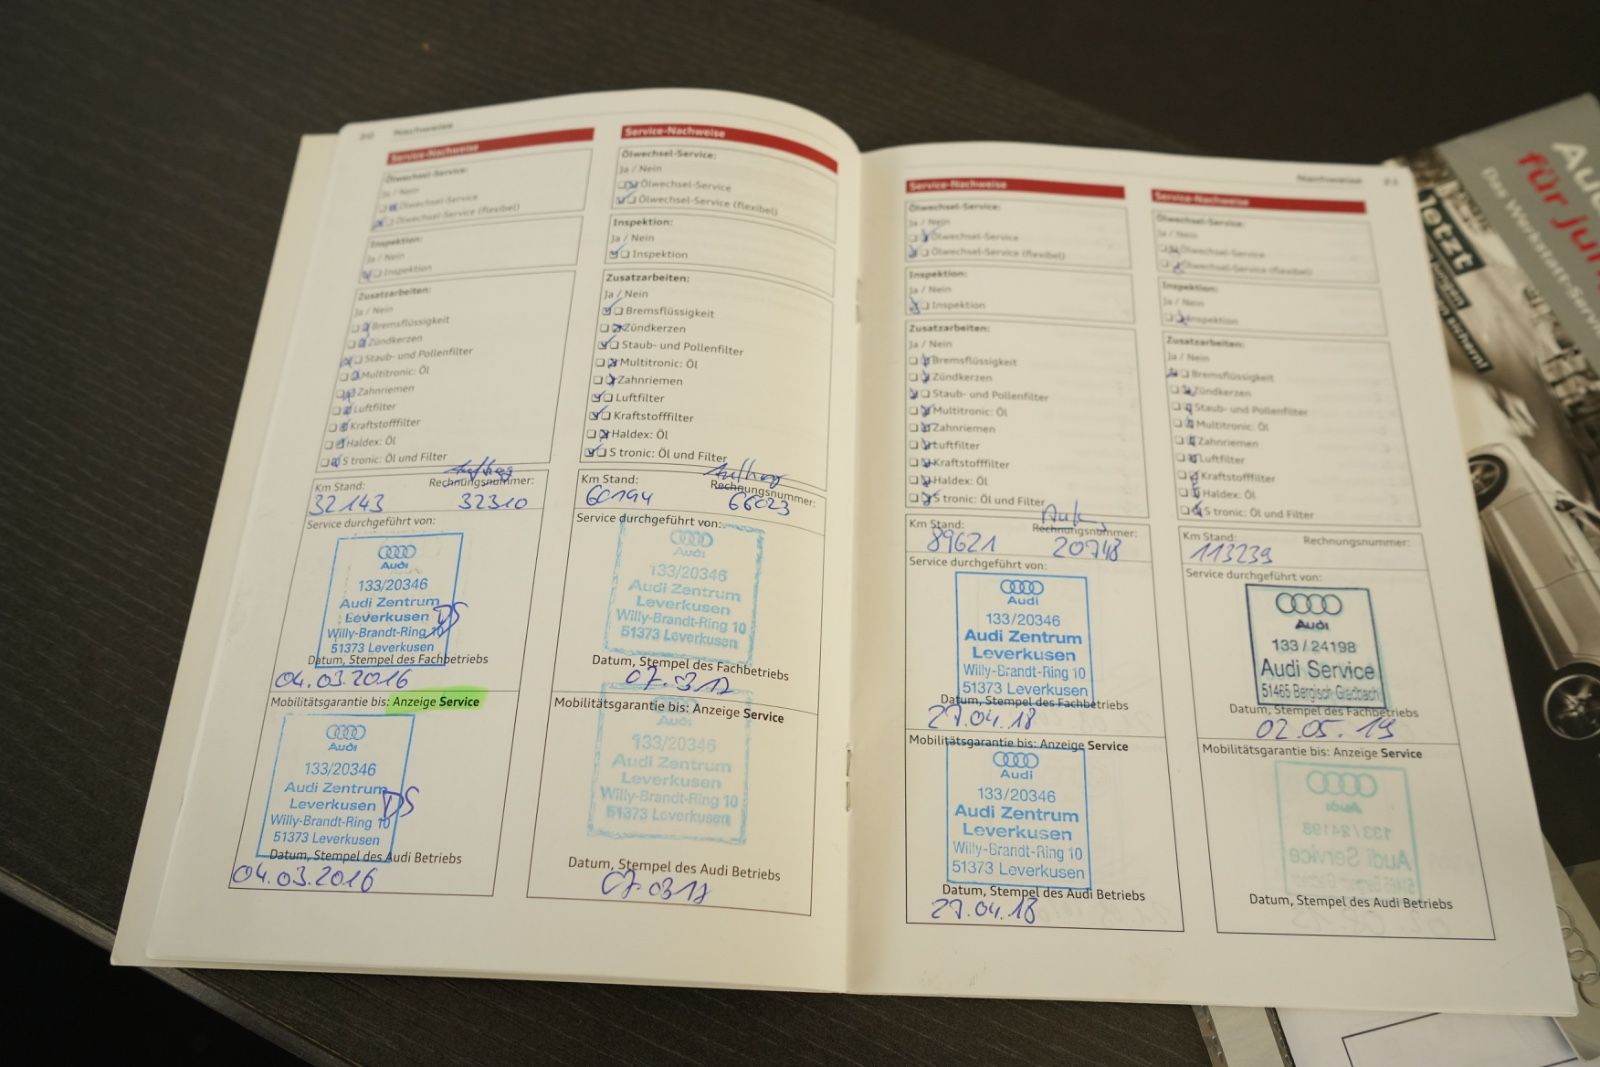 20 Nachweise
Service-Nachweise
Ölwechsel-Service:
Ja / Nein
Ölwechsel-Service
Ölwechsel-Service (flexibel)
Inspektion:
Ja / Nein
Inspektion
Zusatzarbeiten:
Ja / Nein
Bremsflüssigkeit
Zündkerzen
Staub- und Pollenfilter
Multitronic: Öl
Zahnriemen
Luftfilter
Kraftstofffilter
Haldex: Öl
S tronic: Öl und Filter
Auftrag
Km Stand: Rechnungsnummer:
32143 32310
Service durchgeführt von:
Audi
133/20346
Audi Zentrum
Leverkusen
Willy-Brandt-Ring 10
51373 Leverkusen
DS
Datum, Stempel des Fachbetriebs
04.03.2016
Mobilitätsgarantie bis: Anzeige Service
Audi
133/20346
Audi Zentrum
Leverkusen
Willy-Brandt-Ring 10
51373 Leverkusen
DS
Datum, Stempel des Audi Betriebs
04.03.2016
Service-Nachweise
Ölwechsel-Service:
Ja / Nein
Ölwechsel-Service
Ölwechsel-Service (flexibel)
Inspektion:
Ja / Nein
Inspektion
Zusatzarbeiten:
Ja / Nein
Bremsflüssigkeit
Zündkerzen
Staub- und Pollenfilter
Multitronic: Öl
Zahnriemen
Luftfilter
Kraftstofffilter
Haldex: Öl
S tronic: Öl und Filter
Auftrag
Km Stand: Rechnungsnummer:
60194 66023
Service durchgeführt von:
Audi
133/20346
Audi Zentrum
Leverkusen
Willy-Brandt-Ring 10
51373 Leverkusen
Datum, Stempel des Fachbetriebs
07.03.17
Mobilitätsgarantie bis: Anzeige Service
Audi
133/20346
Audi Zentrum
Leverkusen
Willy-Brandt-Ring 10
51373 Leverkusen
Datum, Stempel des Audi Betriebs
07.03.17
Nachweise 21
Service-Nachweise
Ölwechsel-Service:
Ja / Nein
Ölwechsel-Service
Ölwechsel-Service (flexibel)
Inspektion:
Ja / Nein
Inspektion
Zusatzarbeiten:
Ja / Nein
Bremsflüssigkeit
Zündkerzen
Staub- und Pollenfilter
Multitronic: Öl
Zahnriemen
Luftfilter
Kraftstofffilter
Haldex: Öl
S tronic: Öl und Filter
Km Stand: Rechnungsnummer:
89621 20748
Service durchgeführt von:
Audi
133/20346
Audi Zentrum
Leverkusen
Willy-Brandt-Ring 10
51373 Leverkusen
Datum, Stempel des Fachbetriebs
27.04.18
Mobilitätsgarantie bis: Anzeige Service
Audi
133/20346
Audi Zentrum
Leverkusen
Willy-Brandt-Ring 10
51373 Leverkusen
Datum, Stempel des Audi Betriebs
27.04.18
Service-Nachweise
Ölwechsel-Service:
Ja / Nein
Ölwechsel-Service
Ölwechsel-Service (flexibel)
Inspektion:
Ja / Nein
Inspektion
Zusatzarbeiten:
Ja / Nein
Bremsflüssigkeit
Zündkerzen
Staub- und Pollenfilter
Multitronic: Öl
Zahnriemen
Luftfilter
Kraftstofffilter
Haldex: Öl
S tronic: Öl und Filter
Km Stand: Rechnungsnummer:
113239
Service durchgeführt von:
Audi
133/24198
Audi Service
51465 Bergisch Gladbach
Datum, Stempel des Fachbetriebs
02.05.19
Mobilitätsgarantie bis: Anzeige Service
Audi
133/24198
Audi Service
51465 Bergisch Gladbach
Datum, Stempel des Audi Betriebs
für
Jetzt